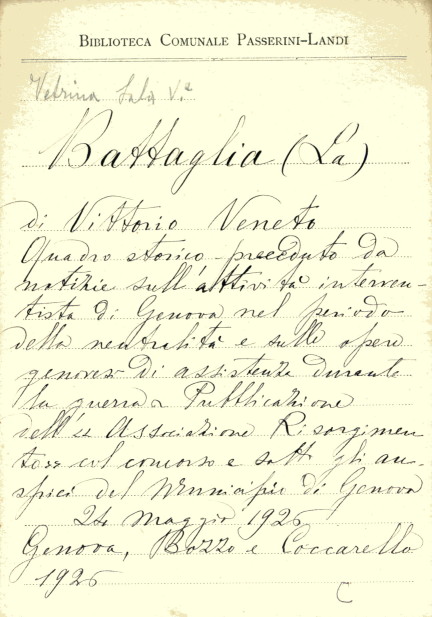 BIBLIOTECA COMUNALE PASSERINI-LANDI
Vetrina Sala V.e
Battaglia (La)
di Vittorio Veneto
Quadro storico preceduto da
notizie sull'attività interven-
tista di Genova nel periodo
della neutralità e sulle opere
genovesi di assistenza durante
la guerra Pubblicazione
dell'" Associazione Risorgimen
to" col concorso e sotto gli au-
spici del Municipio di Genova
24 Maggio 1926
Genova, Bozzo e Coccarello
1926
C